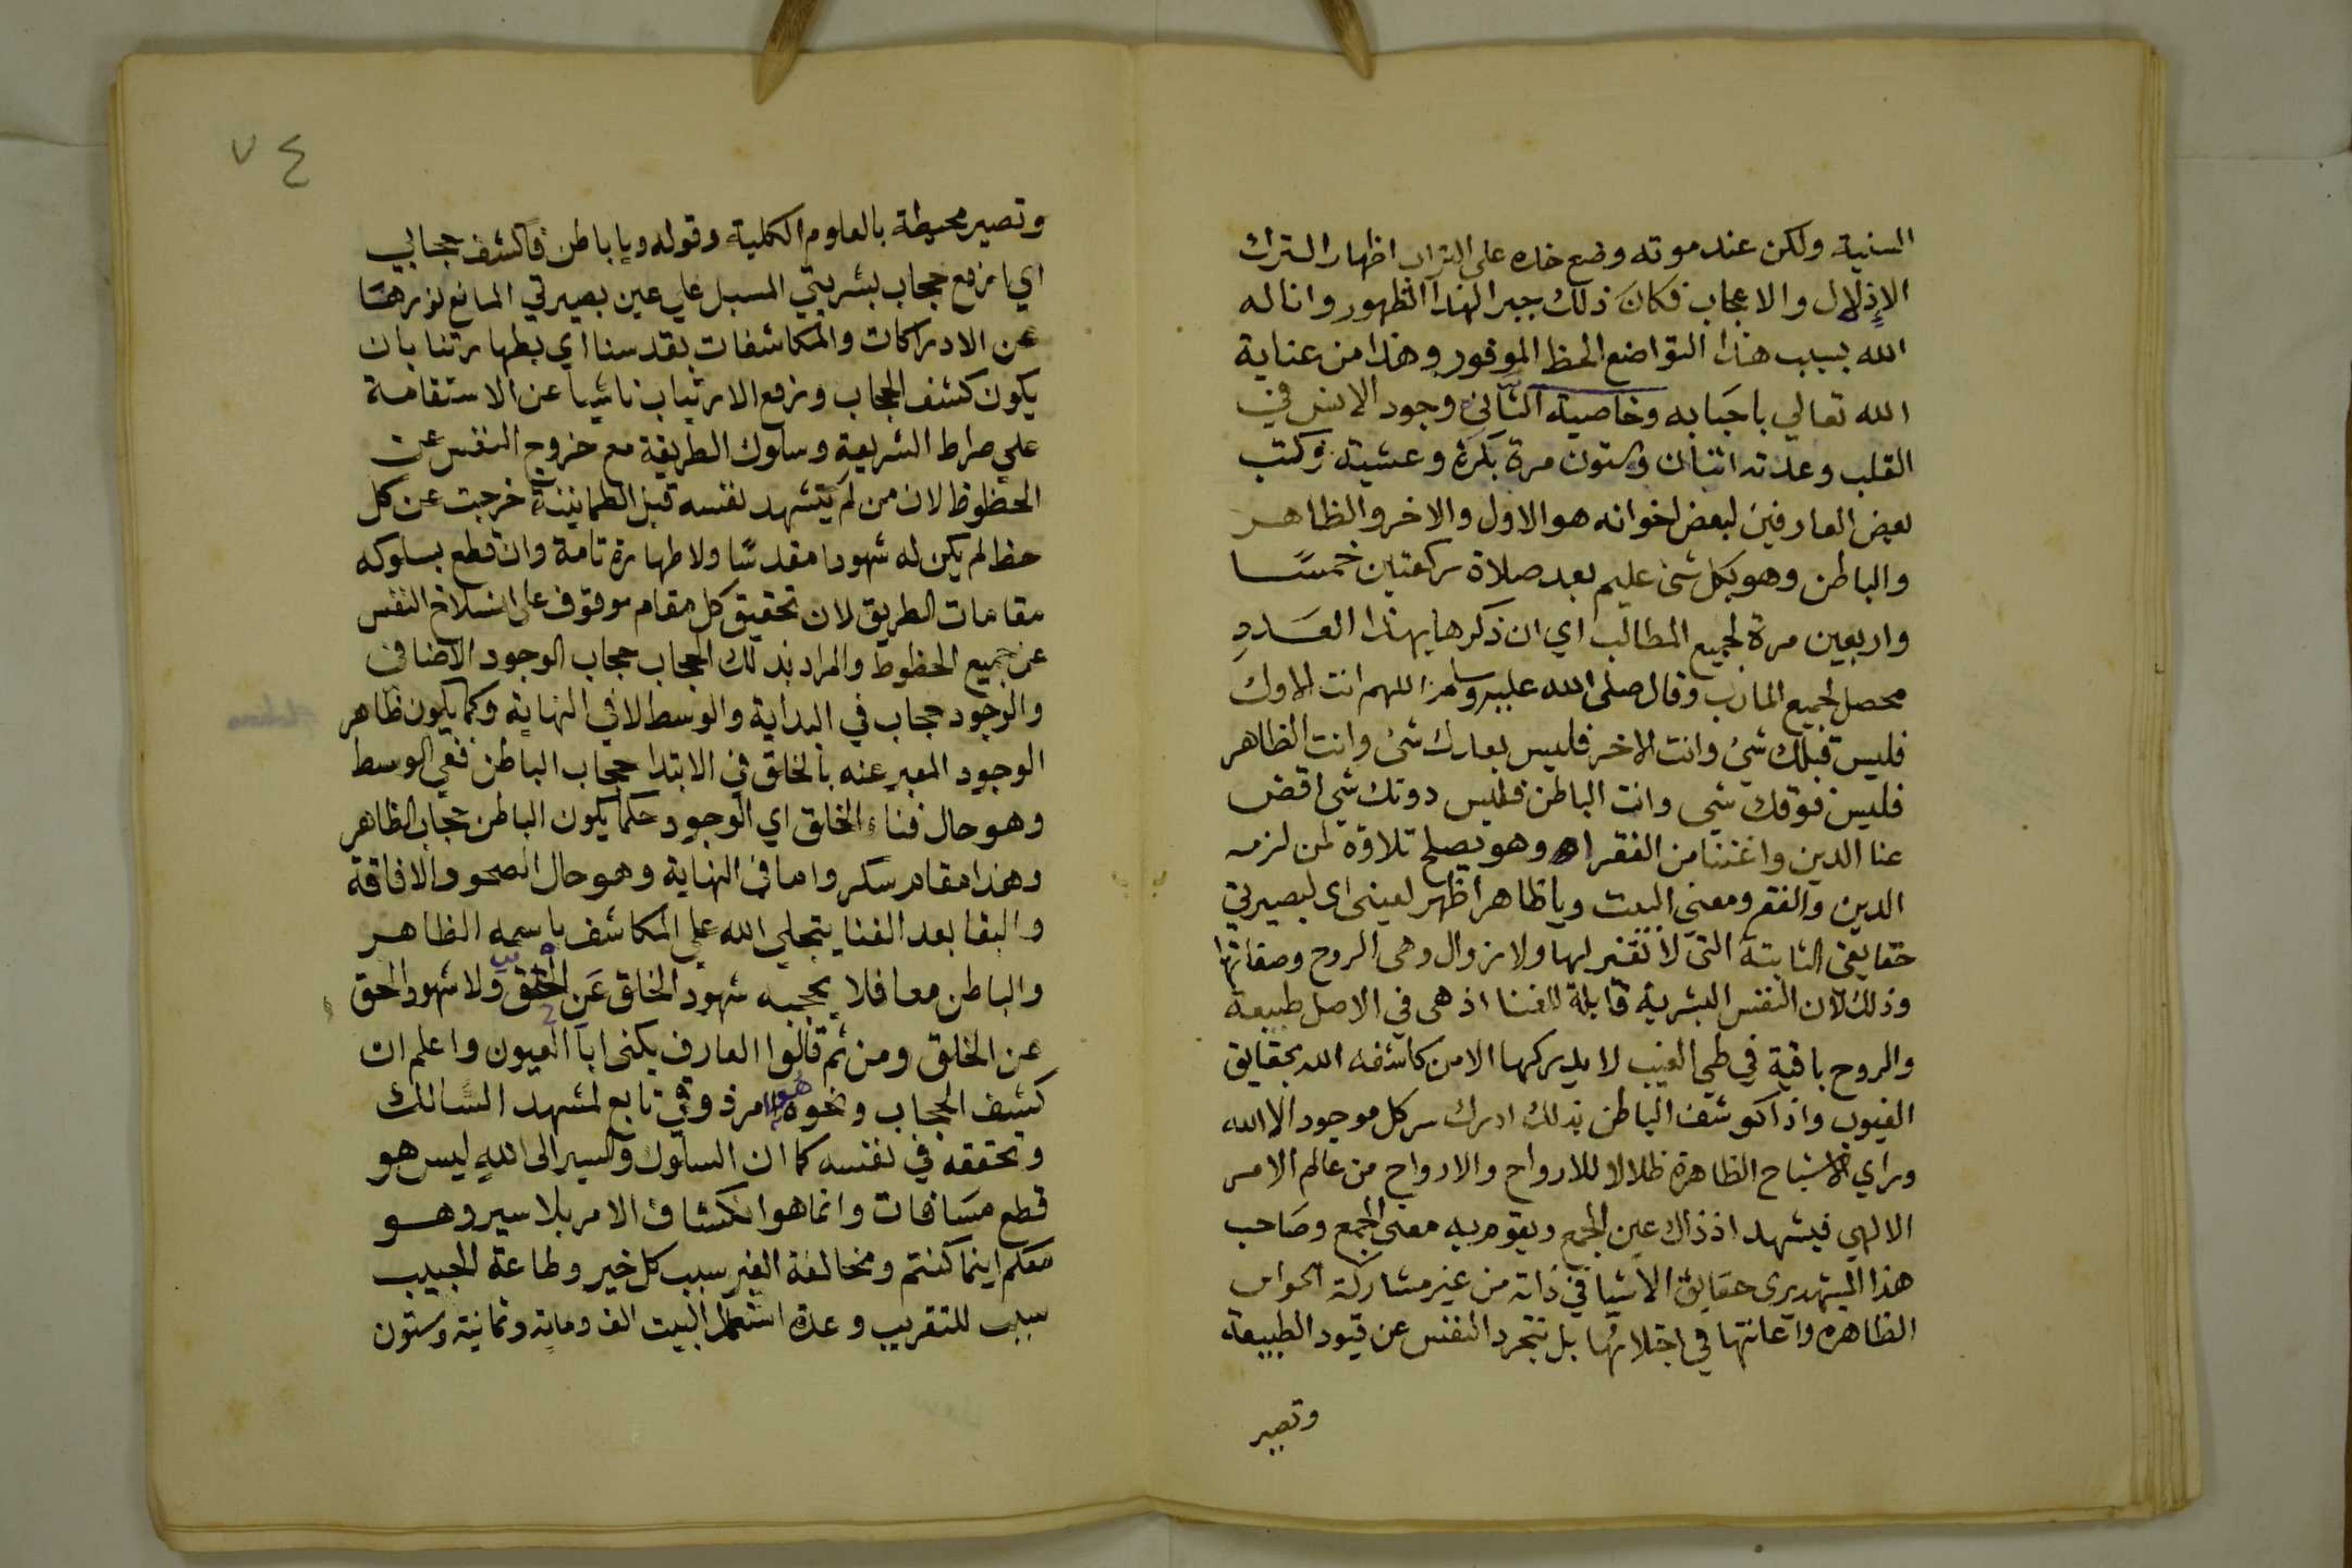 السنية ولكن عند موته وضع خده على التراب اظهار الترك
الإذلال والاعجاب فكان ذلك جبرا لهذا الظهور واناله
الله بسبب هذا التواضع الحظ الموفور وهذا من عناية
الله تعالي باحبابه وخاصية الثاني وجود الانس في
القلب وعدته اثنان وستون مرة بكرة وعشية وكتب
بعض العارفين لبعض اخوانه هو الاول والاخر والظاهر
والباطن وهو بكل شئ عليم بعد صلاة ركعتين خمسًا
واربعين مرة لجميع المطالب اي ان ذكرها بهذا العدد
محصل لجميع المارب وقال صلى الله عليه وسلم اللهم انت الاول
فليس قبلك شئ وانت الاخر فليس بعدك شئ وانت الظاهر
فليس فوقك شي وانت الباطن فليس دونك شي اقض
عنا الدين واغننا من الفقر اه وهو يصلح تلاوة لمن لزمه
الدين والفقر ومعنى البيت ويا ظاهر اظهر لعيني اى لبصيرتي
حقايقي الثابتة التي لا تغير لها ولا زوال وهي الروح وصفاتها
وذلك لان النفس البشرية قابلة للفنا اذ هي في الاصل طبيعة
والروح باقية في طي الغيب لا يدركها الا من كاشفه الله بحقايق
الغيوب واذا كوشف الباطن بذلك ادرك سر كل موجود الا الله
وراي الاشباح الظاهرة ظلالا للارواح والارواح من عالم الامر
الالهي فيشهد اذ ذاك عين الجمع ويقوم به معنى الجمع وصاحب
هذا المشهد يرى حقايق الاشيا في ذاته من غير مشاركة الحواس
الظاهرة واعانتها في اجتلائها بل تتجرد النفس عن قيود الطبيعة
وتصير
٧٤
وتصير محيطة بالعلوم الكلية وقوله ويا باطن فاكشف حجابي
اي ارفع حجاب بشريتي المسبل علي عين بصيرتي المانع نورها
عن الادراكات والمكاشفات بقدسنا اي بطهارتنا بان
يكون كشف الحجاب ورفع الارتياب ناشيا عن الاستقامة
علي صراط الشريعة وسلوك الطريقة مع خروج النفس عن
الحظوظ لان من لم يتشهد نفسه قبل الطمانينة خرجت عن كل
حظ لم يكن له شهودا مقدسًا ولا طهارة تامة وان قطع بسلوكه
مقامات الطريق لان تحقيق كل مقام موقوف على انسلاخ النفس
عن جميع الحظوظ والمراد بذلك الحجاب حجاب الوجود الاضافي
والوجود حجاب في البداية والوسط لا في النهاية وكما يكون ظاهر
الوجود المعبر عنه بالخلق في الابتدا حجاب الباطن ففي الوسط
وهو حال فناء الخلق اي الوجود حكما يكون الباطن حجاب الظاهر
وهذا مقام سكر واما في النهاية وهو حال الصحو والافاقة
والبقا بعد الفنا يتجلي الله علي المكاشف باسمه الظاهر
والباطن معا فلا يحجبه شهود الخلق عن الحق ولا شهود الحق
عن الخلق ومن ثم قالوا العارف يكنى ابا العيون واعلم ان
كشف الحجاب ونحوه هو امر ذوقي تابع لمشهد السالك
وتحققه في نفسه كما ان السلوك والسير الى الله ليس هو
قطع مسافات وانما هو انكشاف الامر بلا سير وهو
معكم اينما كنتم ومخالفة الغير سبب كل خير وطاعة الحبيب
سبب للتقريب وعدة استعمال البيت الف ومائة وثمانية وستون